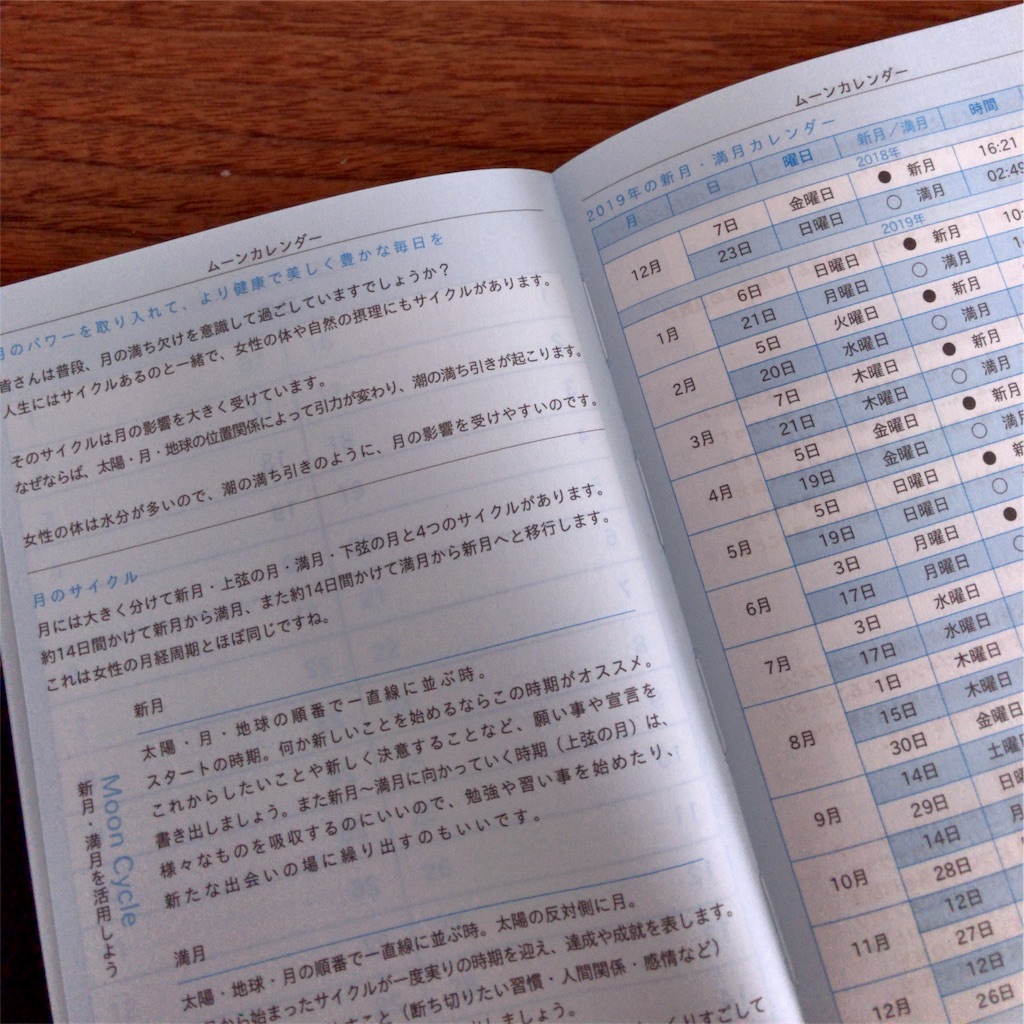 ムーンカレンダー
月のパワーを取り入れて、より健康で美しく豊かな毎日を
皆さんは普段、月の満ち欠けを意識して過ごしていますでしょうか？
人生にはサイクルあるのと一緒で、女性の体や自然の摂理にもサイクルがあります。
そのサイクルは月の影響を大きく受けています。
なぜならば、太陽・月・地球の位置関係によって引力が変わり、潮の満ち引きが起こります。
女性の体は水分が多いので、潮の満ち引きのように、月の影響を受けやすいのです。
月のサイクル
月には大きく分けて新月・上弦の月・満月・下弦の月と4つのサイクルがあります。
約14日間かけて新月から満月、また約14日間かけて満月から新月へと移行します。
これは女性の月経周期とほぼ同じですね。
Moon Cycle
新月・満月を活用しよう
新月
太陽・月・地球の順番で一直線に並ぶ時。
スタートの時期。何か新しいことを始めるならこの時期がオススメ。
これからしたいことや新しく決意することなど、願い事や宣言を
書き出しましょう。また新月〜満月に向かっていく時期（上弦の月）は、
様々なものを吸収するのにいいので、勉強や習い事を始めたり、
新たな出会いの場に繰り出すのもいいです。
満月
太陽・地球・月の順番で一直線に並ぶ時。太陽の反対側に月。
から始まったサイクルが一度実りの時期を迎え、達成や成就を表します。
すこと（断ち切りたい習慣・人間関係・感情など）
しましょう。
くりすごして
ムーンカレンダー
2019年の新月・満月カレンダー
月 日 曜日 新月／満月 時間
2018年
12月 7日 金曜日 ● 新月 16:21
23日 日曜日 ○ 満月 02:49
2019年
1月 6日 日曜日 ● 新月 10
21日 月曜日 ○ 満月
2月 5日 火曜日 ● 新月
20日 水曜日 ○ 満月
3月 7日 木曜日 ● 新月
21日 木曜日 ○ 満月
4月 5日 金曜日 ● 新月
19日 金曜日 ○ 満月
5月 5日 日曜日 ● 新
19日 日曜日 ○
6月 3日 月曜日 ●
17日 月曜日 ○
7月 3日 水曜日
17日 水曜日
8月 1日 木曜日
15日 木曜日
30日 金曜日
9月 14日 土曜
29日 日曜
10月 14日 月
28日
11月 12日
27日
12月 12日
26日